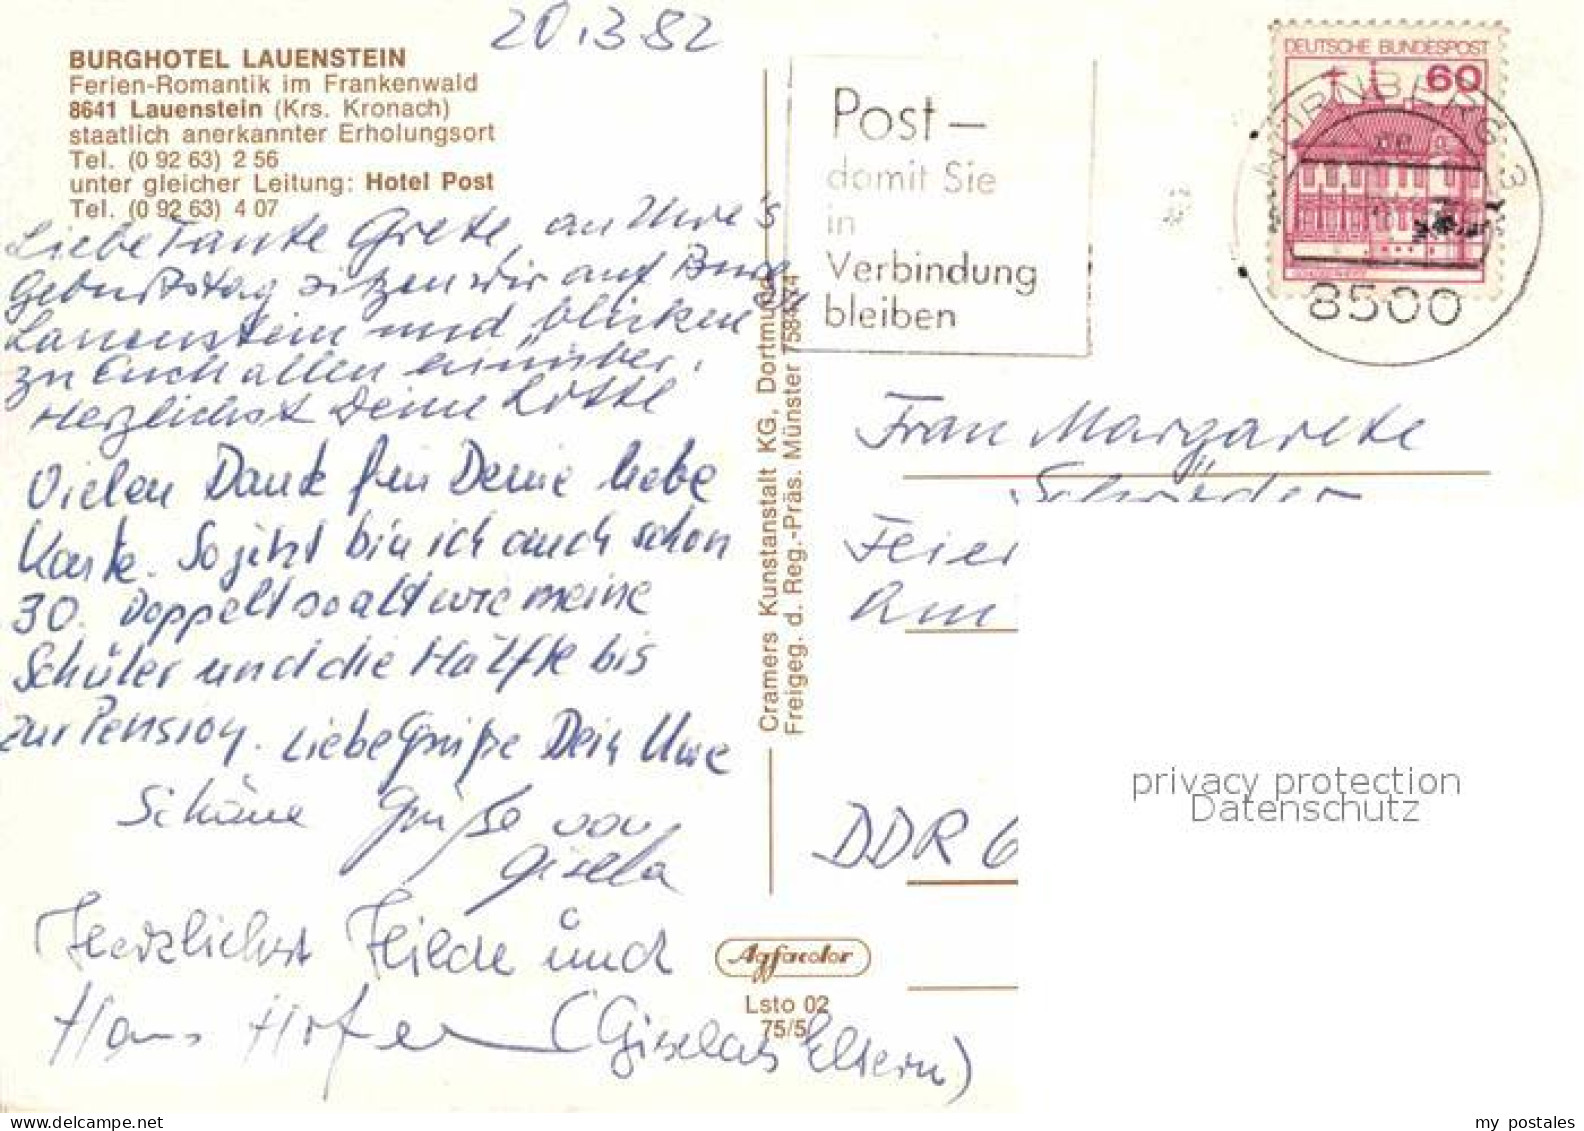 20.3.82
BURGHOTEL LAUENSTEIN
Ferien-Romantik im Frankenwald
8641 Lauenstein (Krs. Kronach)
staatlich anerkannter Erholungsort
Tel. (0 92 63) 2 56
unter gleicher Leitung: Hotel Post
Tel. (0 92 63) 4 07
Liebe Tante Grete, an Uwe's
Geburtstag sitzen wir auf Burg
Lauenstein und blicken
zu Euch allen hinüber.
Herzlichst Deine Lotte
Vielen Dank für Deine liebe
Karte. So jetzt bin ich auch schon
30. Doppelt so alt wie meine
Schüler und die Hälfte bis
zur Pension. Liebe Grüße Dein Uwe
Schöne Grüße von
Gisela
Herzlichst Hilde und
Hans Hofer (Giselas Eltern)
Cramers Kunstanstalt KG, Dortmund
Freigeg. d. Reg.-Präs. Münster 7584/74
Agfacolor
Lsto 02
75/5
Post –
damit Sie
in
Verbindung
bleiben
DEUTSCHE BUNDESPOST
60
NÜRNBERG 3
8500
Frau Margarete
Schröder
Feier
Am
DDR 6
privacy protection
Datenschutz
my postales